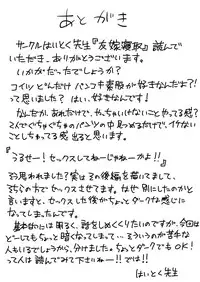 あとがき
サークルはいとく先生『友嫁寝取』読んで
いただき、ありがとうございます。
いかがだったでしょうか？
コイツどんだけパンコキ素股が好きなんだよ？！
って思いました？はい、好きなんです！
なんだか、あれだけで、やっちゃいけないことヤってる感？
でぐちゃぐちゃのパンツの中見つめるだけで、イケない
ことしちゃってる感出ると思います。
『うるせー！セックスしてねーじゃねーかよ！！』
そう思われました？実はその後編を描いてまして、
そちらの方でセックスさせてます。なぜ別にしたのかと
言いますと、セックスした後がちょっとダークな感じに
なってしまったんです。
基本的には明るく、話をしめくくりたいのですが、今回は
どーしてもちょっと暗くなってしまって…そういうのが苦手な
人もいるでしょうから、分けました。ちょっとダークでもOK！
って人は読んでみて下さいねー！！では！！
はいとく先生